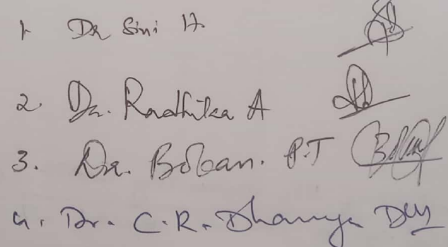 1. Dr Sini H.
2. Dr. Radhika A
3. Dr. Boban. P.T
4. Dr. C.R. Dhanya